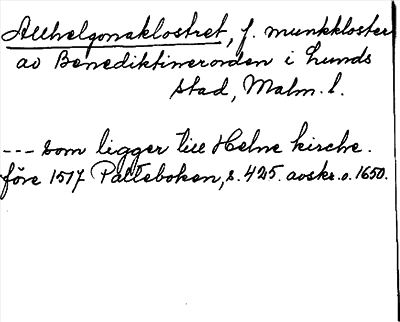 Allhelgonaklostret, f. munkkloster
av Benediktinerorden i Lunds
stad, Malm. l.
--- som ligger till Helne kirche.
före 1517 Palteboken, s. 425. avskr. o. 1650.